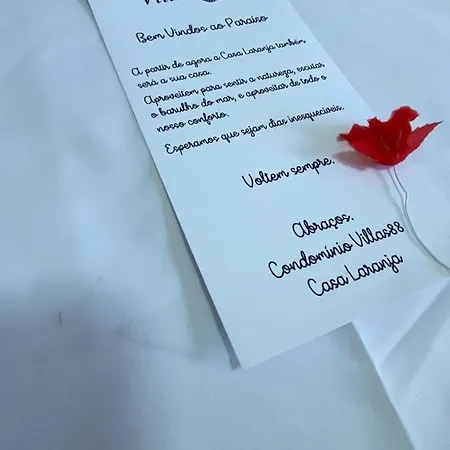 Bem Vindos ao Paraiso
A partir de agora a Casa Laranja também
será a sua casa.
Aproveitem para sentir a natureza, escutar
o barulho do mar, e aproveitar de todo o
nosso conforto.
Esperamos que sejam dias inesquecíveis.
Voltem sempre.
Abraços,
Condomínio Villas88
Casa Laranja